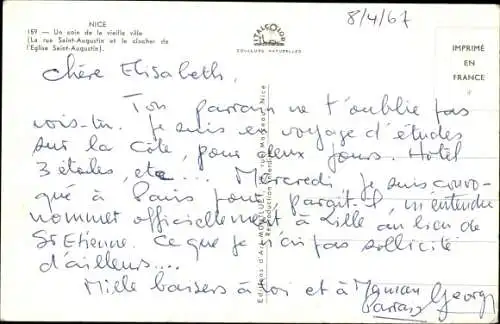 NICE
159 - Un coin de la vieille ville
(La rue Saint-Augustin et le clocher de
l'Eglise Saint-Augustin).
8/4/67
ITALCOLOR
COULEURS NATURELLES
IMPRIMÉ
EN
FRANCE
Chère Elisabeth,
Ton parrain ne t'oublie pas
vois-tu. Je suis en voyage d'études
sur la Côte, pour deux jours. Hôtel
3 étoiles, etc.... Mercredi, je suis convo-
qué à Paris pour, paraît-il, m'entendre
nommer officiellement à Lille au lieu de
St Etienne. Ce que je n'ai pas sollicité
d'ailleurs....
Mille baisers à toi et à Maman
parrain Georges
Editions d'Art rue Masséna Nice
Reproduction interdite